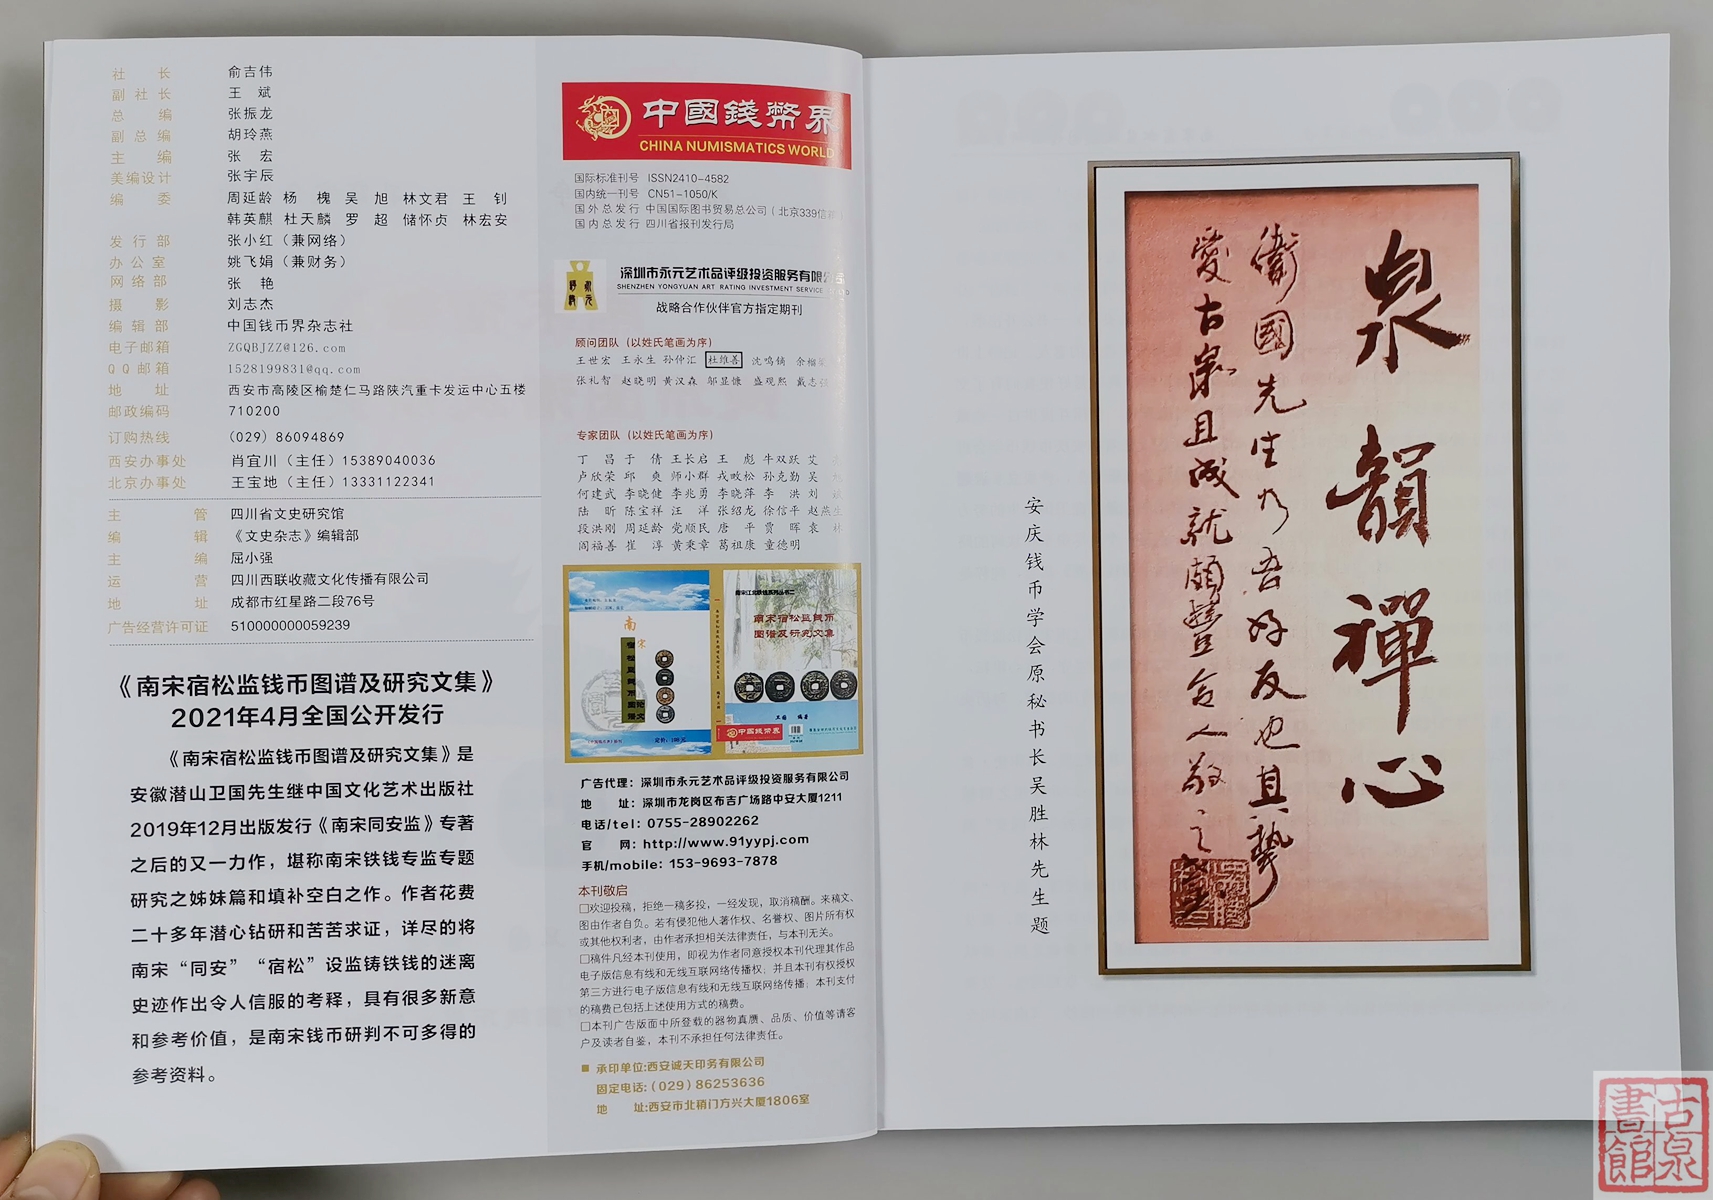 社 长 俞吉伟
副社长 王 斌
总 编 张振龙
副总编 胡玲燕
主 编 张 宏
美编设计 张宇辰
编 委 周延龄 杨 槐 吴 旭 林文君 王 钊
韩英麒 杜天麟 罗 超 储怀贞 林宏安
发行部 张小红（兼网络）
办公室 姚飞娟（兼财务）
网络部 张 艳
摄 影 刘志杰
编辑部 中国钱币界杂志社
电子邮箱 ZGQBJZZ@126.com
QQ邮箱 1528199831@qq.com
地 址 西安市高陵区榆楚仁马路陕汽重卡发运中心五楼
邮政编码 710200
订购热线 （029）86094869
西安办事处 肖宜川（主任）15389040036
北京办事处 王宝地（主任）13331122341
主 管 四川省文史研究馆
编 辑 《文史杂志》编辑部
主 编 屈小强
运 营 四川西联收藏文化传播有限公司
地 址 成都市红星路二段76号
广告经营许可证 510000000059239
《南宋宿松监钱币图谱及研究文集》
2021年4月全国公开发行
《南宋宿松监钱币图谱及研究文集》是
安徽潜山卫国先生继中国文化艺术出版社
2019年12月出版发行《南宋同安监》专著
之后的又一力作，堪称南宋铁钱专监专题
研究之姊妹篇和填补空白之作。作者花费
二十多年潜心钻研和苦苦求证，详尽的将
南宋“同安”“宿松”设监铸铁钱的迷离
史迹作出令人信服的考释，具有很多新意
和参考价值，是南宋钱币研判不可多得的
参考资料。
中國錢幣界
CHINA NUMISMATICS WORLD
国际标准刊号 ISSN2410-4582
国内统一刊号 CN51-1050/K
国外总发行 中国国际图书贸易总公司（北京339信
国内总发行 四川省报刊发行局
深圳市永元艺术品评级投资服务有限公司
SHENZHEN YONGYUAN ART RATING INVESTMENT SERVICE
战略合作伙伴官方指定期刊
顾问团队（以姓氏笔画为序）
王世宏 王永生 孙仲汇 杜维善 沈鸣镝 余榴
张礼智 赵晓明 黄汉森 邬显慷 盛观熙 戴志
专家团队（以姓氏笔画为序）
丁 昌 于 倩 王长启 王 彪 牛双跃 艾
卢欣荣 邱 爽 师小群 戎畋松 孙克勤 吴
何建武 李晓健 李兆勇 李晓萍 李 洪 刘
陆 昕 陈宝祥 汪 洋 张绍龙 徐信平 赵燕生
段洪刚 周延龄 党顺民 唐 平 贾 晖 袁 林
阎福善 崔 淳 黄秉章 葛祖康 童德明
南宋
南宋江北铁钱系列丛书二
南宋宿松监钱币
图谱及研究文集
中國錢幣界
广告代理：深圳市永元艺术品评级投资服务有限公司
地 址：深圳市龙岗区布吉广场路中安大厦1211
电话/tel：0755-28902262
官 网：http://www.91yypj.com
手机/mobile：153-9693-7878
本刊敬启
□欢迎投稿，拒绝一稿多投，一经发现，取消稿酬。来稿文、
图由作者自负。若有侵犯他人著作权、名誉权、图片所有权
或其他权利者，由作者承担相关法律责任，与本刊无关。
□稿件凡经本刊使用，即视为作者同意授权本刊代理其作品
电子版信息有线和无线互联网络传播权；并且本刊有权授权
第三方进行电子版信息有线和无线互联网络传播；本刊支付
的稿费已包括上述使用方式的稿费。
□本刊广告版面中所登载的器物真赝、品质、价值等请客
户及读者自鉴，本刊不承担任何法律责任。
■ 承印单位:西安诚天印务有限公司
固定电话:（029）86253636
地 址:西安市北稍门方兴大厦1806室
泉韻禪心
衛國先生乃吾好友也其藝
愛古泉且成就頗豐令人敬之
安庆钱币学会原秘书长吴胜林先生题
古泉書館